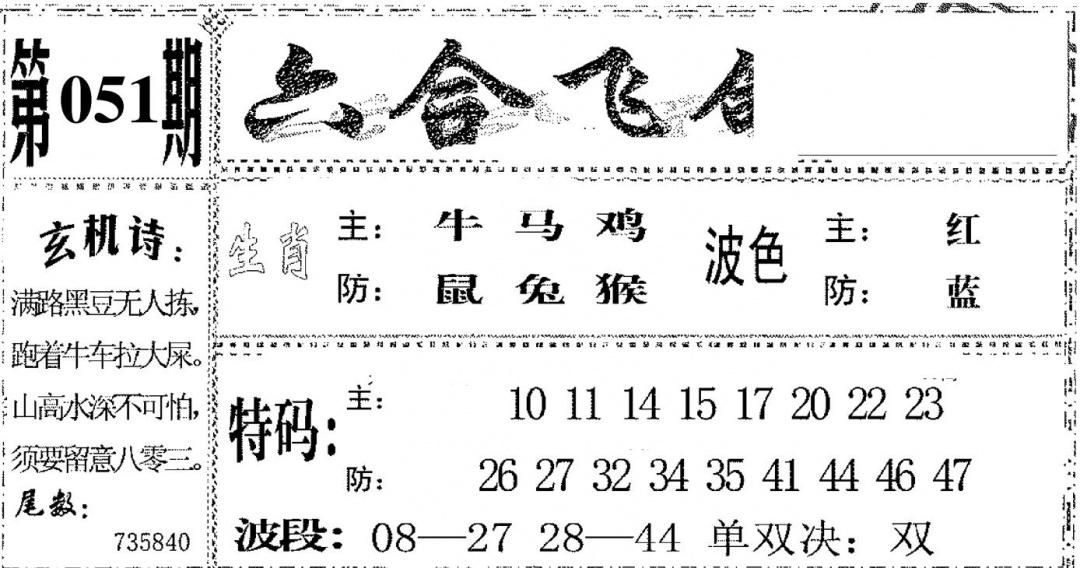 第051期
六合飞
玄机诗:
满路黑豆无人拣,
跑着牛车拉大屎。
山高水深不可怕,
须要留意八零三。
尾数:
735840
生肖 主: 牛 马 鸡
防: 鼠 兔 猴
波色 主: 红
防: 蓝
特码: 主: 10 11 14 15 17 20 22 23
防: 26 27 32 34 35 41 44 46 47
波段: 08—27 28—44 单双决: 双